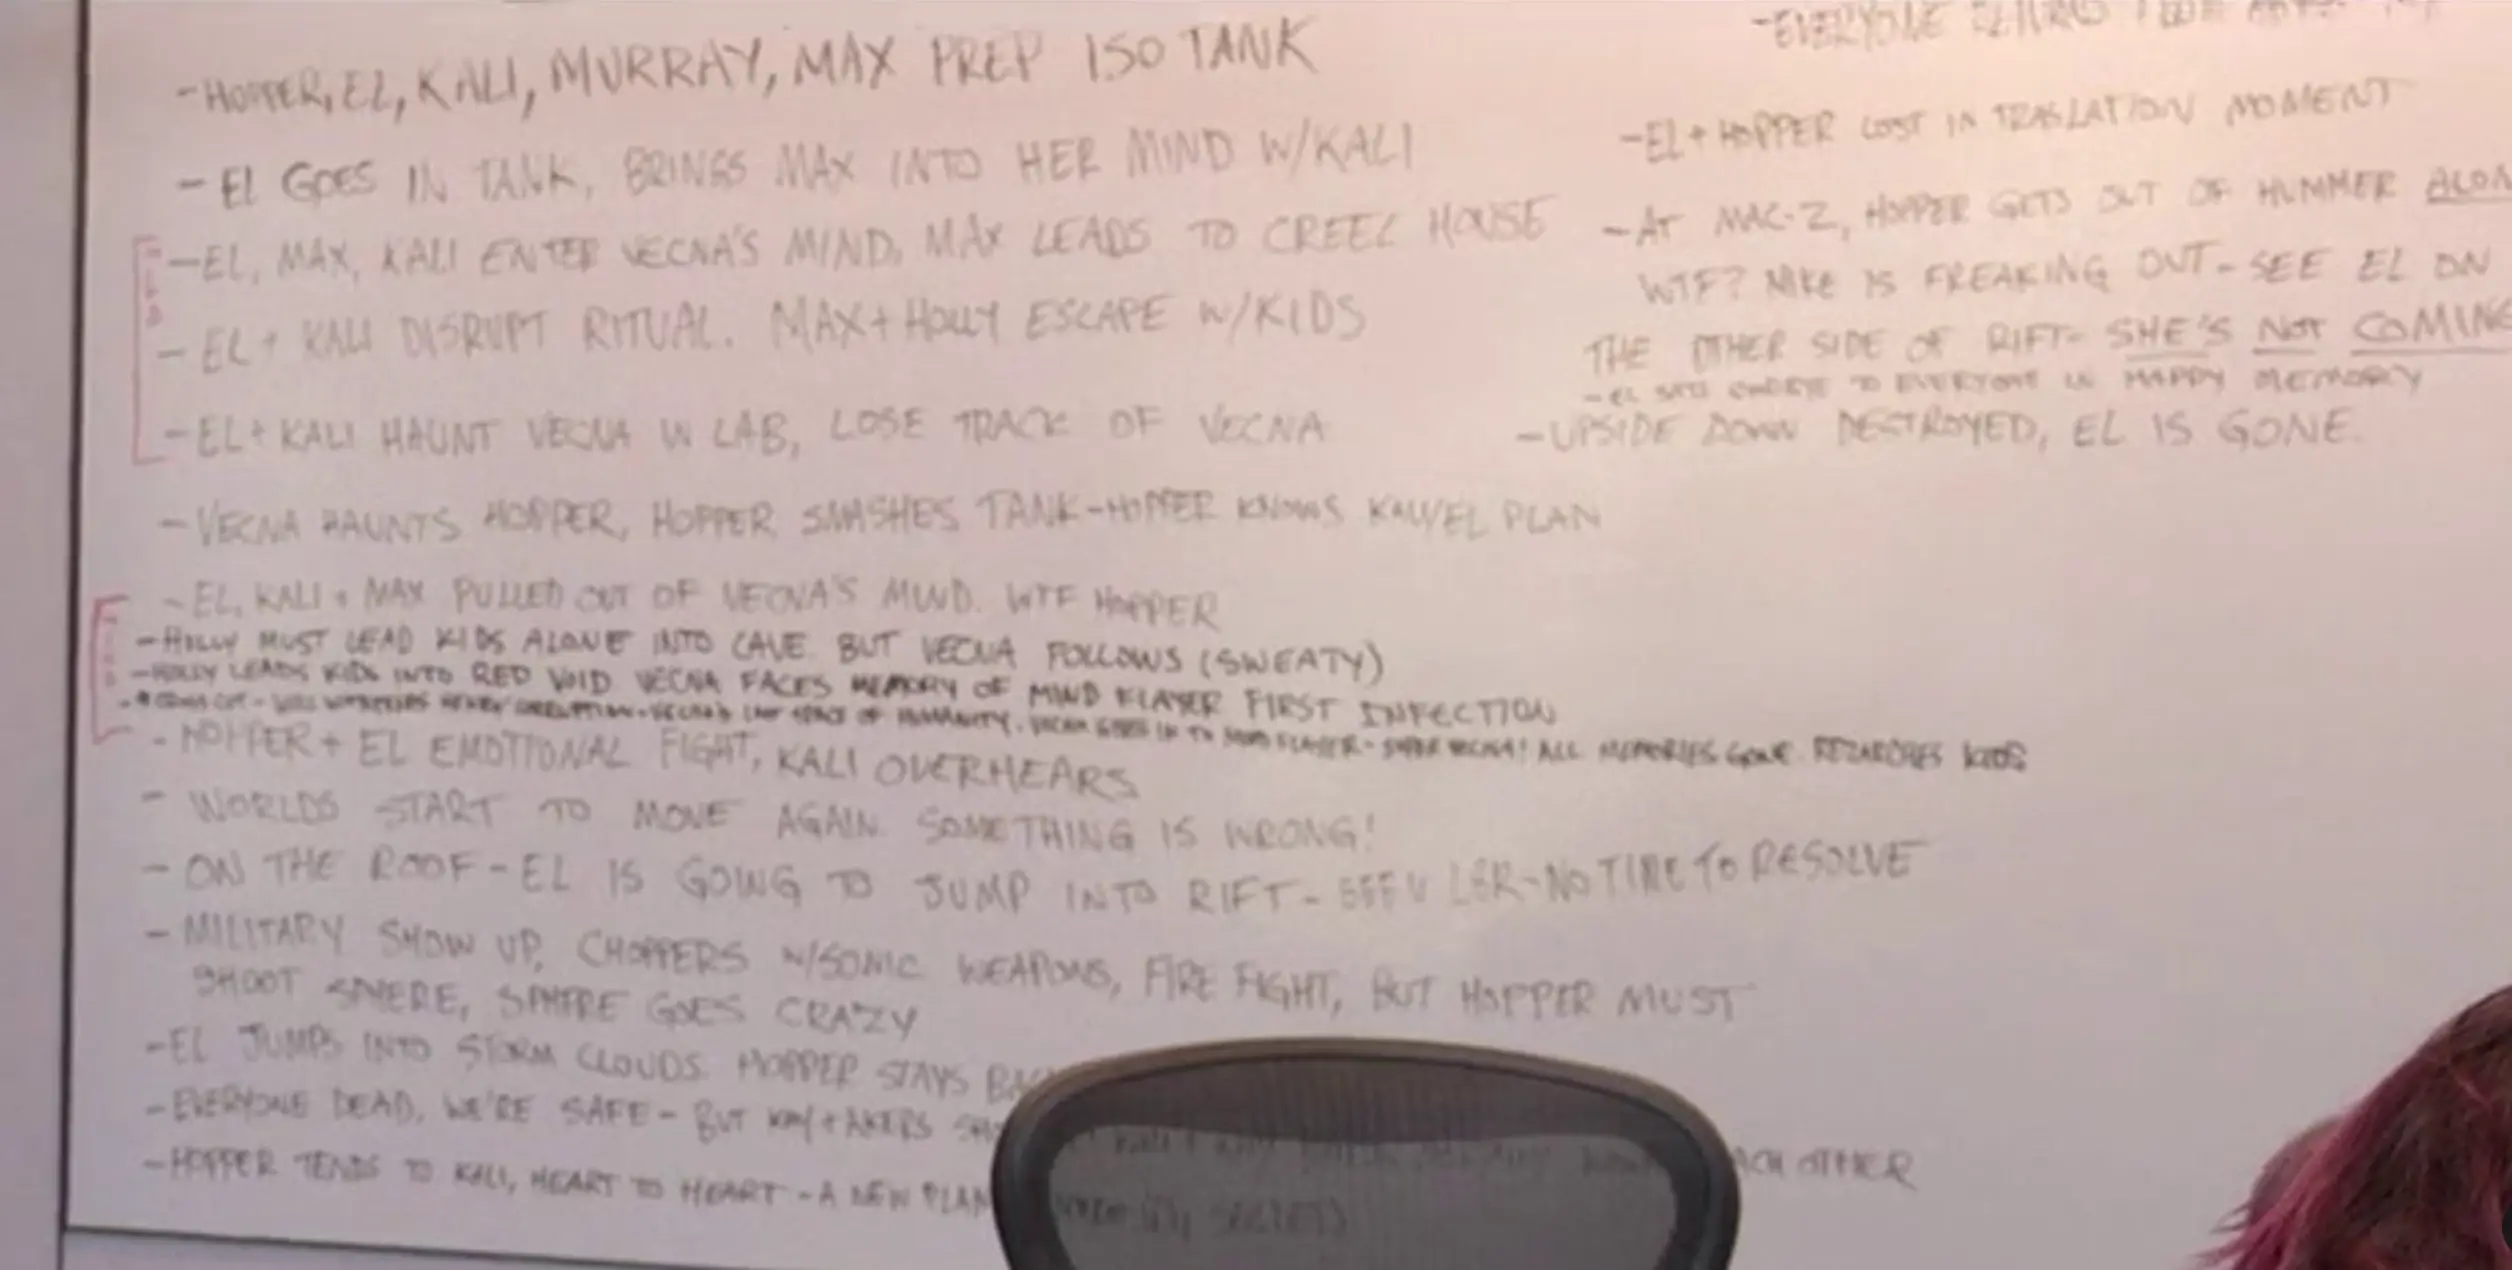 -HOPPER, EL, KALI, MURRAY, MAX PREP ISO TANK
- EL GOES IN TANK, BRINGS MAX INTO HER MIND W/KALI
-EL, MAX, KALI ENTER VECNA'S MIND, MAX LEADS TO CREEL HOUSE
- EL + KALI DISRUPT RITUAL. MAX + HOLLY ESCAPE W/KIDS
-EL + KALI HAUNT VECNA IN LAB, LOSE TRACK OF VECNA
- VECNA HAUNTS HOPPER, HOPPER SMASHES TANK-HOPPER KNOWS KALI/EL PLAN
-EL, KALI + MAX PULLED OUT OF VECNA'S MIND. WTF HOPPER
-HOLLY MUST LEAD KIDS ALONE INTO CAVE BUT VECNA FOLLOWS (SWEATY)
-HOLLY LEADS KIDS INTO RED VOID VECNA FACES MEMORY OF MIND FLAYER FIRST INFECTION
WILL WITNESSES HENRY OF HUMANITY. ALL MEMORIES GONE. KIDS
- HOPPER + EL EMOTIONAL FIGHT, KALI OVERHEARS
- WORLDS START TO MOVE AGAIN SOMETHING IS WRONG!
- ON THE ROOF - EL IS GOING TO JUMP INTO RIFT - NO TIME TO RESOLVE
- MILITARY SHOW UP, CHOPPERS W/SONIC WEAPONS, FIRE FIGHT, BUT HOPPER MUST
SHOOT SPHERE, SPHERE GOES CRAZY
-EL JUMPS INTO STORM CLOUDS. HOPPER STAYS
-EVERYONE DEAD, WE'RE SAFE - BUT KAY + AKERS OTHER
-HOPPER TENDS TO KALI, HEART TO HEART - A NEW PLAN
-EVERYONE
-EL + HOPPER LOST IN TRASLATION MOMENT
-AT MAC-Z, HOPPER GETS OUT OF HUMMER
WTF? MIKE IS FREAKING OUT - SEE EL ON
THE OTHER SIDE OF RIFT- SHE'S NOT COMING
-EL SAYS GOODBYE TO EVERYONE IN HAPPY MEMORY
-UPSIDE DOWN DESTROYED, EL IS GONE.